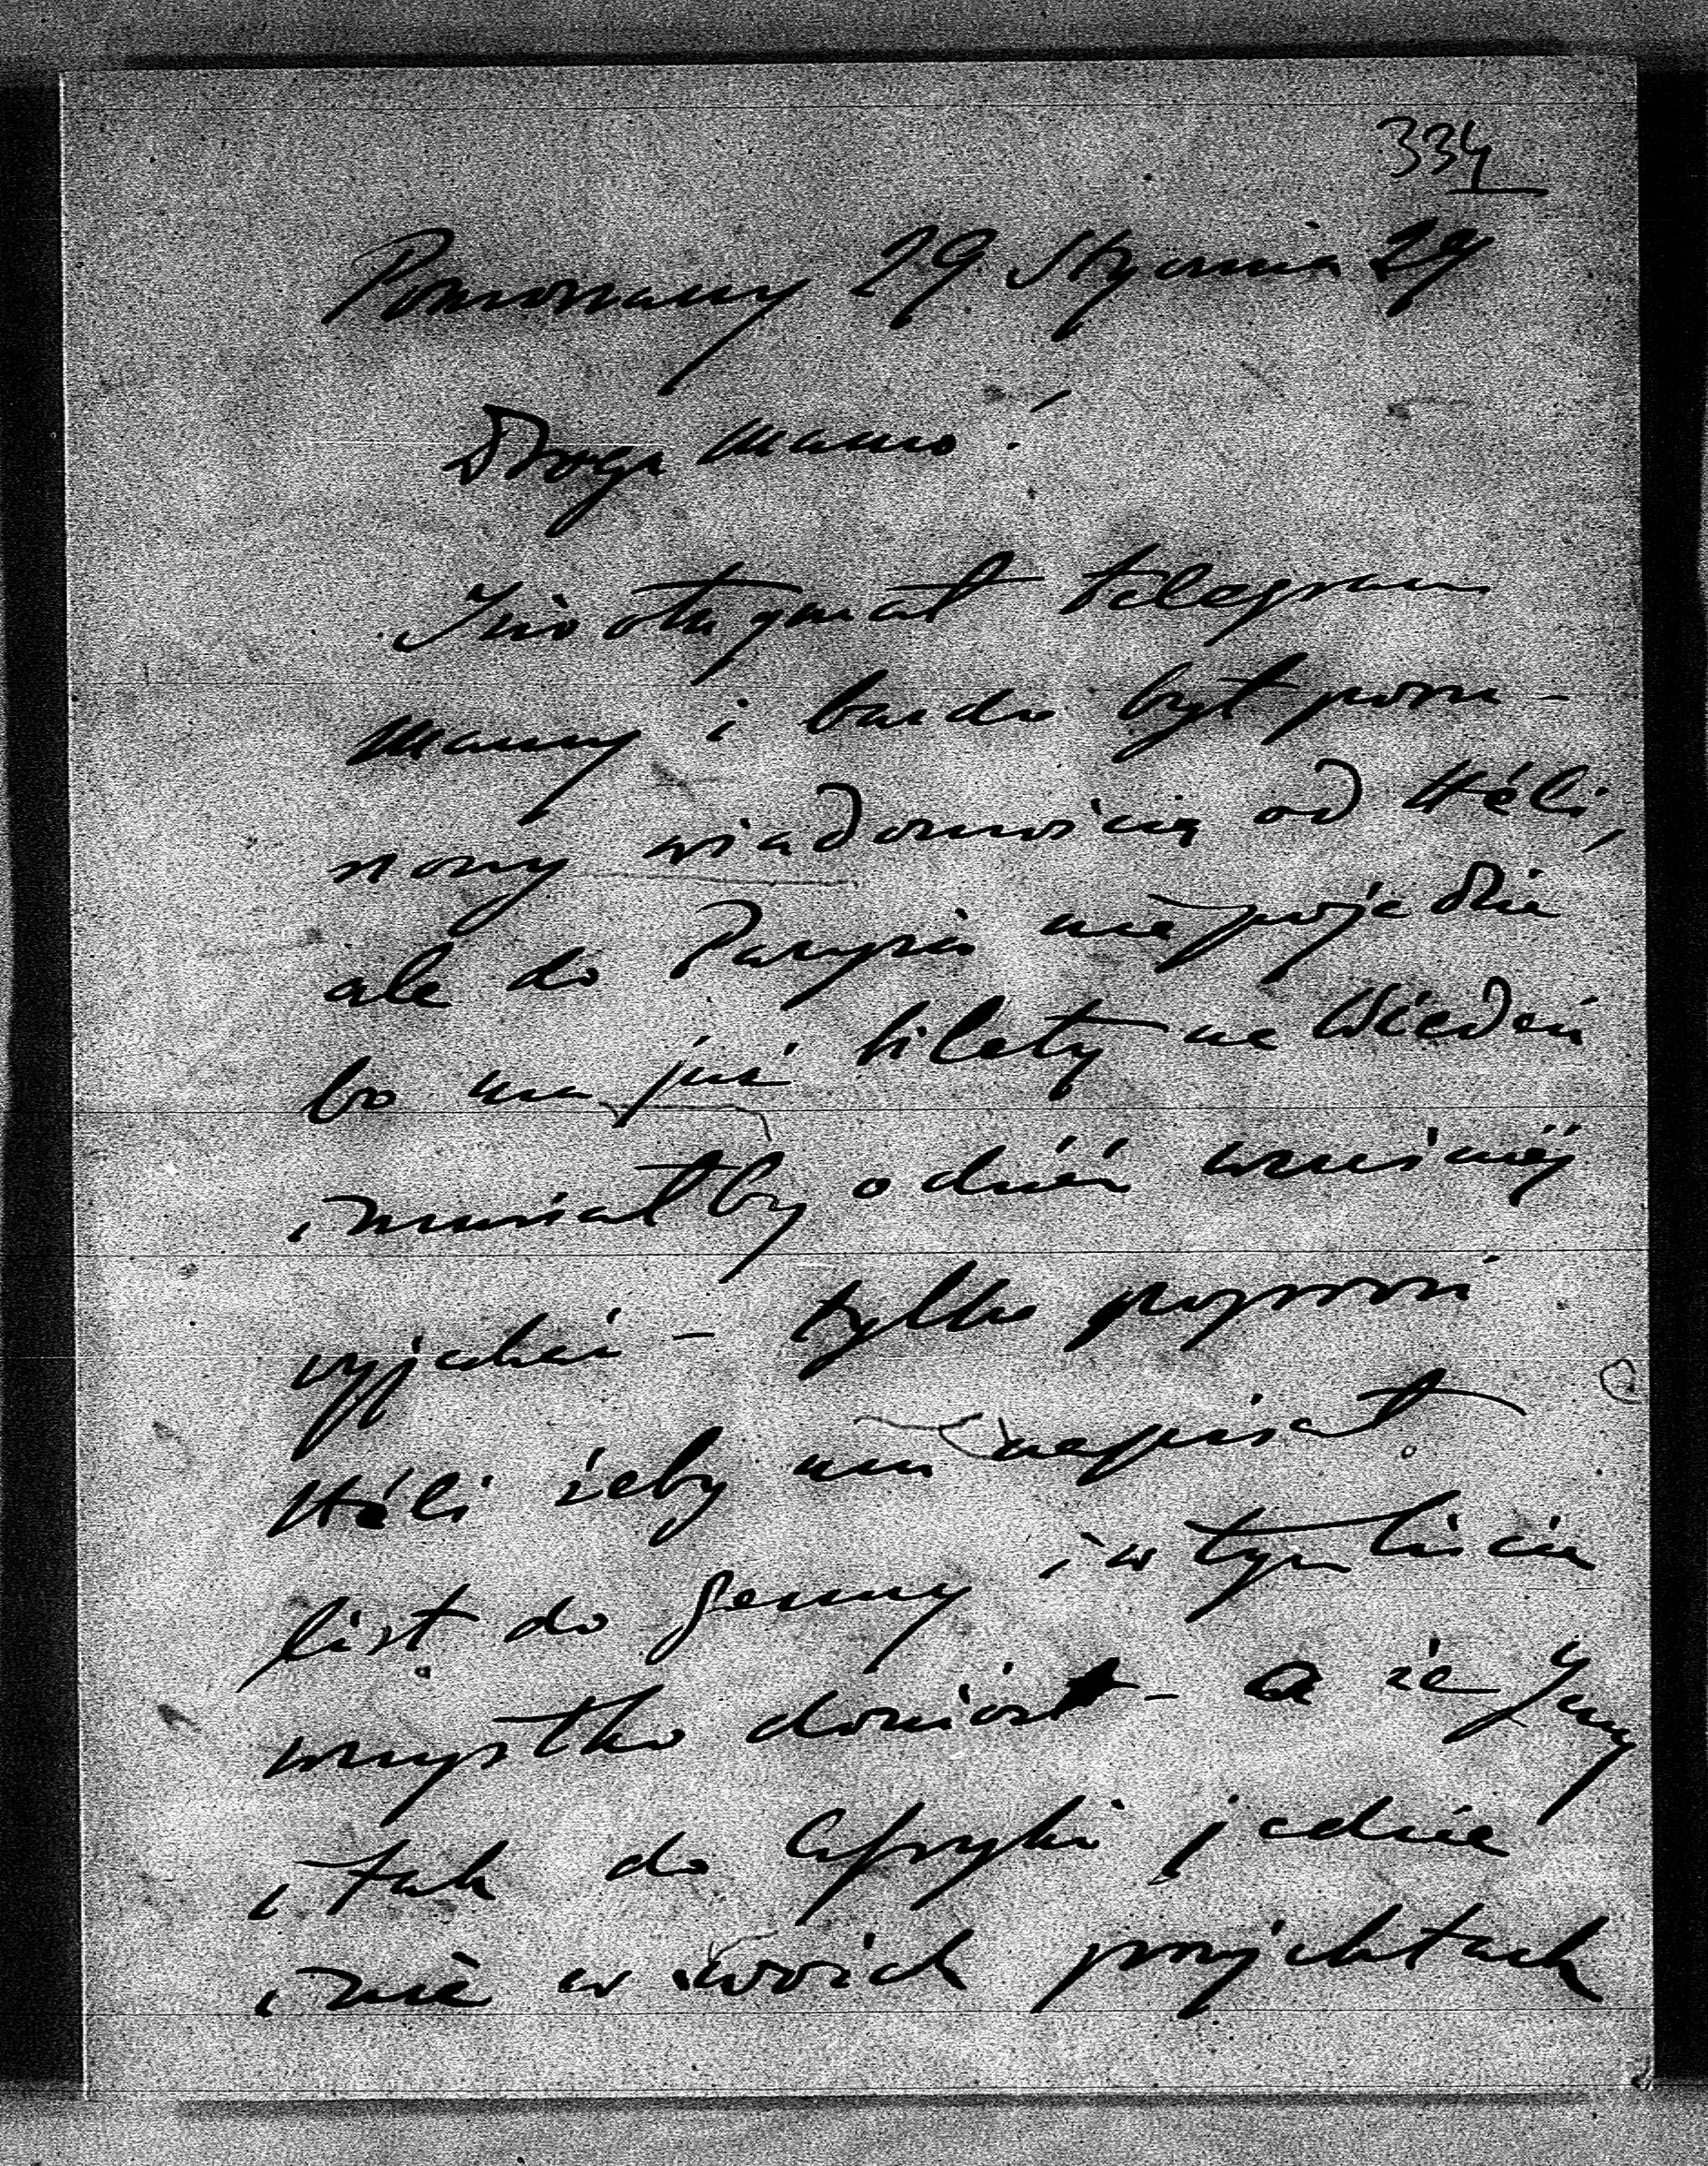 334
Pomorzany 29 Stycznia 29
Droga Mamo!
Józio otrzymał telegram
Mamy i bardzo był poru-
szony wiadomością od Héli,
ale do Paryża nie pojedzie
bo ma już bilety na Wiedeń
i musiałby o dzień wcześniej
wyjechać – tylko poprosi
Héli żeby mu napisał
list do Jenny i w tym liście
wszystko doniósł – a że
i tak do Afryki jedzie
i nie w swoich projektach